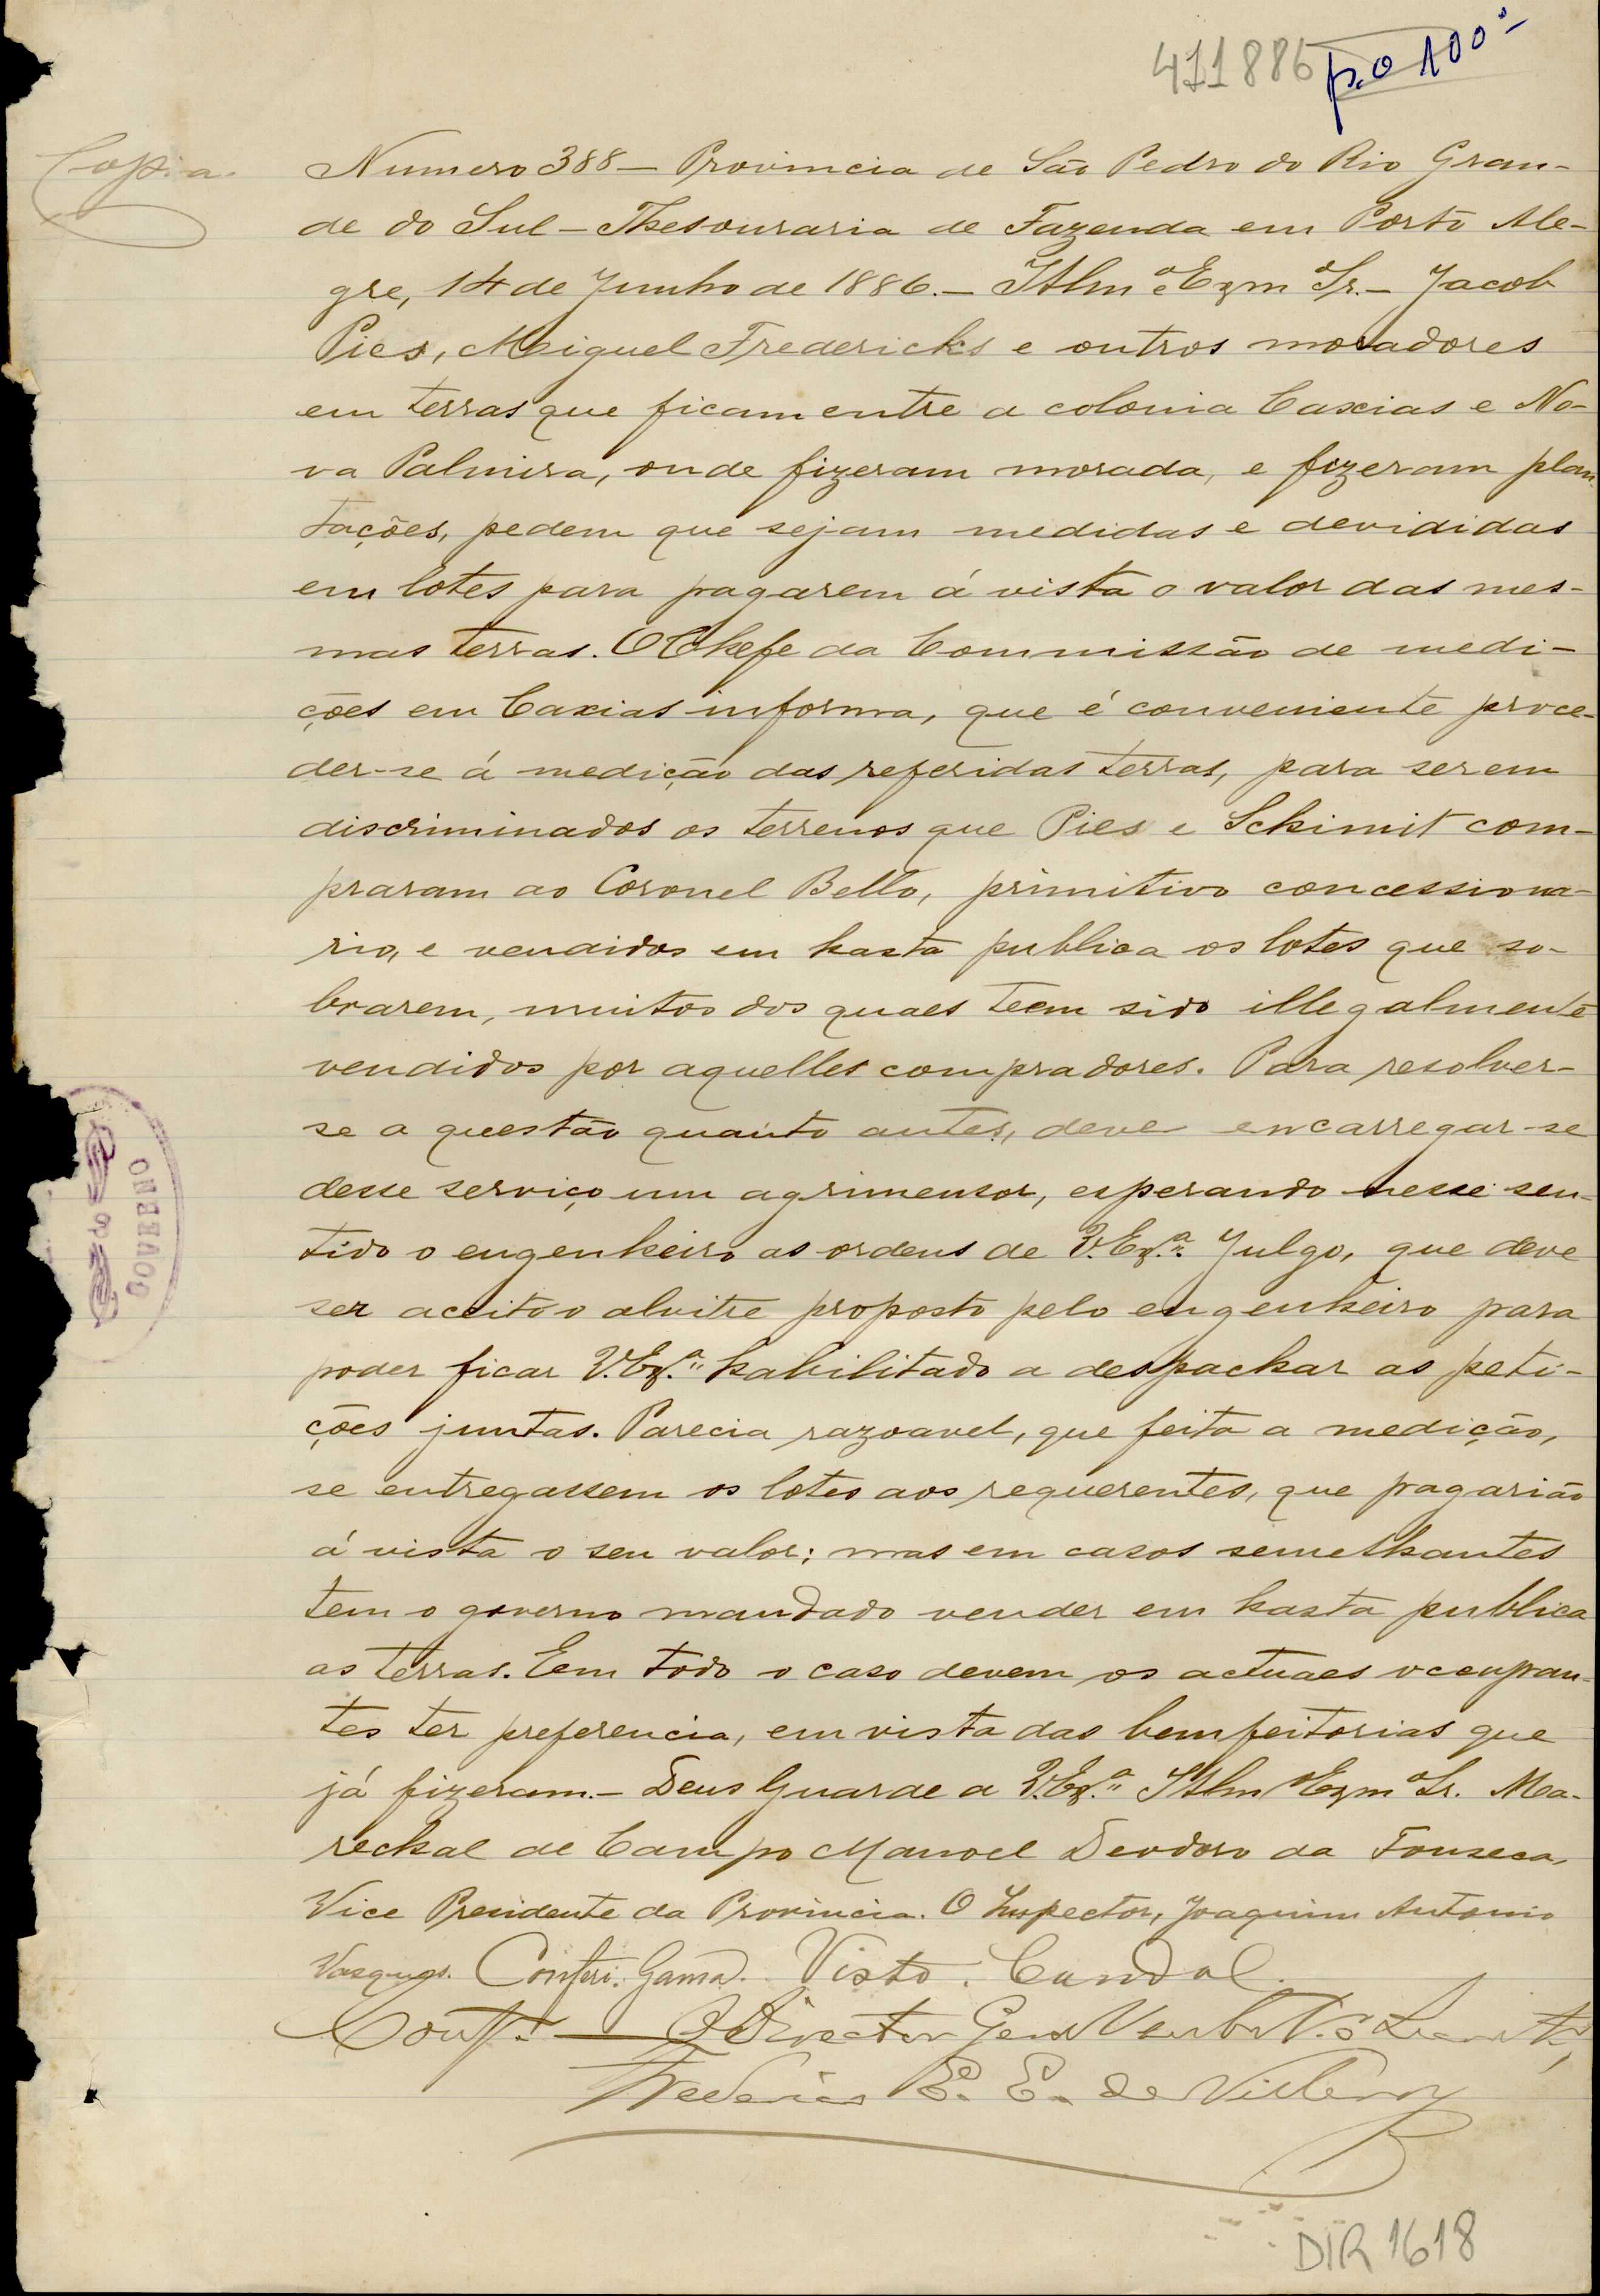 411886 p.o 100
Copia.
Numero 388 — Provincia de São Pedro do Rio Gran-
de do Sul — Thesouraria de Fazenda em Porto Ale-
gre, 14 de Junho de 1886. — Illmº Exmº Sr. — Jacob
Pies, Meiguel Fredericks e outros moradores
em terras que ficam entre a colonia Caxias e No-
va Palmira, onde fizeram morada, e fizeram plan-
tações, pedem que sejam medidas e devididas
em lotes para pagarem á vista o valor das mes-
mas terras. O Chefe da Commissão de medi-
ções em Caxias informa, que é conveniente proce-
der-se á medição das referidas terras, para serem
discriminados os terrenos que Pies e Schimit com-
praram ao Coronel Bello, primitivo concessiona-
rio, e vendidos em hasta publica os lotes que so-
brarem, muitos dos quaes teem sido illegalmente
vendidos por aquelles compradores. Para resolver-
se a questão quanto antes, deve encarregar-se
desse serviço um agrimensor, esperando nesse sen-
tido o engenheiro as ordens de V. Exª. Julgo, que deve
ser aceito o alvitre proposto pelo engenheiro para
poder ficar V. Exª. habilitado a despachar as peti-
ções juntas. Parecia razoavel, que feita a medição,
se entregassem os lotes aos requerentes, que pagarião
á vista o seu valor; mas em casos semelhantes
tem o governo mandado vender em hasta publica
as terras. Em todo o caso devem os actuaes occupan-
tes ter preferencia, em vista das bemfeitorias que
já fizeram. — Deus Guarde a V. Exª. Illmº Exmº Sr. Ma-
rechal de Campo Manoel Deodoro da Fonseca,
Vice Presidente da Provincia. O Inspector, Joaquim Antonio
Vasques. Conferi. Gama. Visto. Candal.
Confe — O Director Geral
Frederico E. E. de Villeroy
GOVERNO
DIR 1618